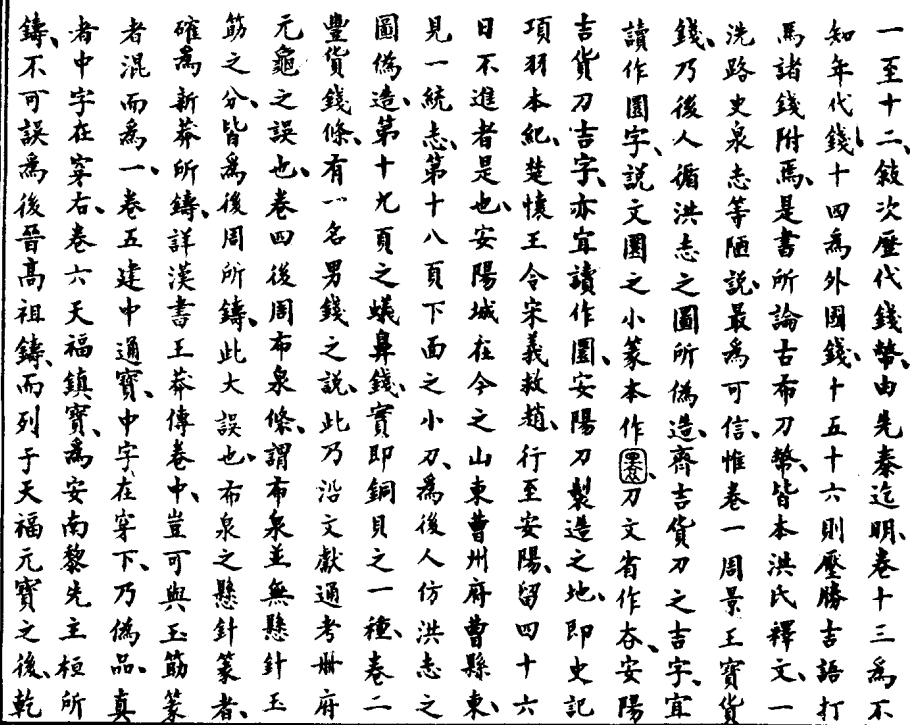 一至十二、敍次歷代錢幣、由先秦迄明、卷十三爲不
知年代錢、十四爲外國錢、十五十六則壓勝吉語打
馬諸錢附焉、是書所論古布刀幣、皆本洪氏釋文、一
洗路史泉志等陋說、最爲可信、惟卷一周景王寶貨
錢、乃後人循洪志之圖所僞造、齊吉貨刀之吉字、宜
讀作圜字、說文圜之小篆本作、刀文省作、安陽
吉貨刀吉字、亦宜讀作圜、安陽刀製造之地、即史記
項羽本紀、楚懷王令宋義救趙、行至安陽、留四十六
日不進者是也、安陽城在今之山東曹州府曹縣東、
見一統志、第十八頁下面之小刀、爲後人仿洪志之
圖僞造、第十九頁之蟻鼻錢、實即銅貝之一種、卷二
豐貨錢條、有一名男錢之說、此乃沿文獻通考冊府
元龜之誤也、卷四後周布泉條、謂布泉並無懸針玉
筋之分、皆爲後周所鑄、此大誤也、布泉之懸針篆者、
確爲新莽所鑄、詳漢書王莽傳卷中、豈可與玉筋篆
者混而爲一、卷五建中通寶、中字在穿下、乃僞品、真
者中字在穿右、卷六天福鎮寶、爲安南黎先主桓所
鑄、不可誤爲後晉高祖鑄、而列于天福元寶之後、乾